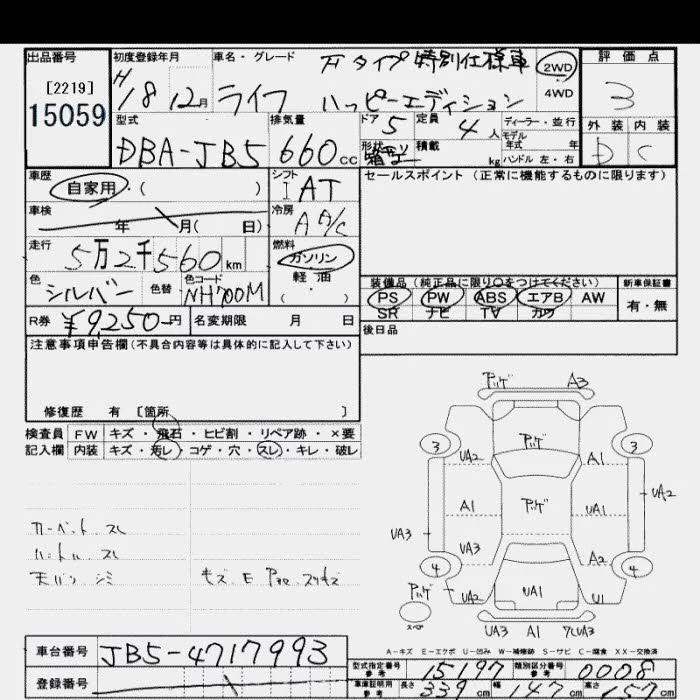 出品番号 初度登録年月 車名・グレード 評価点
[2219] 15059
H18 12月 ライフ Fタイプ特別仕様車 ハッピーエディション
2WD 4WD
3
型式 排気量 ドア 定員 ディーラー・並行 外装 内装
DBA-JB5 660cc 5 4人 モデル年式 年 D C
形状 積載 kg ハンドル 左・右
車歴 シフト セールスポイント(正常に機能するものに限ります)
自家用・( ) I AT
車検 年 月( 日) 冷房 A A/C
走行 燃料
5万2千560km ガソリン・軽油・( )
色 色替 色コード 装備品(純正品に限り○をつけてください) 新車保証書
シルバー NH700M PS PW ABS エアB AW 有・無
SR ナビ TV カワ
R券 ¥9,250円 名変期限 月 日 後日品
注意事項申告欄(不具合内容等は具体的に記入して下さい)
修復歴 有 [箇所 ]
検査員 FW キズ・飛石・ヒビ割・リペア跡・×要
記入欄 内装 キズ・汚レ・コゲ・穴・スレ・キレ・破レ
カーペット スレ
ハンドル スレ
天バリ シミ
キズ E
アリゲ A3
3 アリゲ 3
UA2 A1
A1 アリゲ UA1 UA2
UA3 UA3 A2
4 4
アリゲ UA2 UA1 U1
スペア
UA3 A1
A-キズ E-エクボ U-凹み W-補修跡 S-サビ C-腐食 XX-交換済
車台番号 JB5-4717993
登録番号
型式指定番号 参考 15197 類別区分番号 参考 0008
車庫証明用 参考 長さ 339cm 幅 147cm 高さ cm